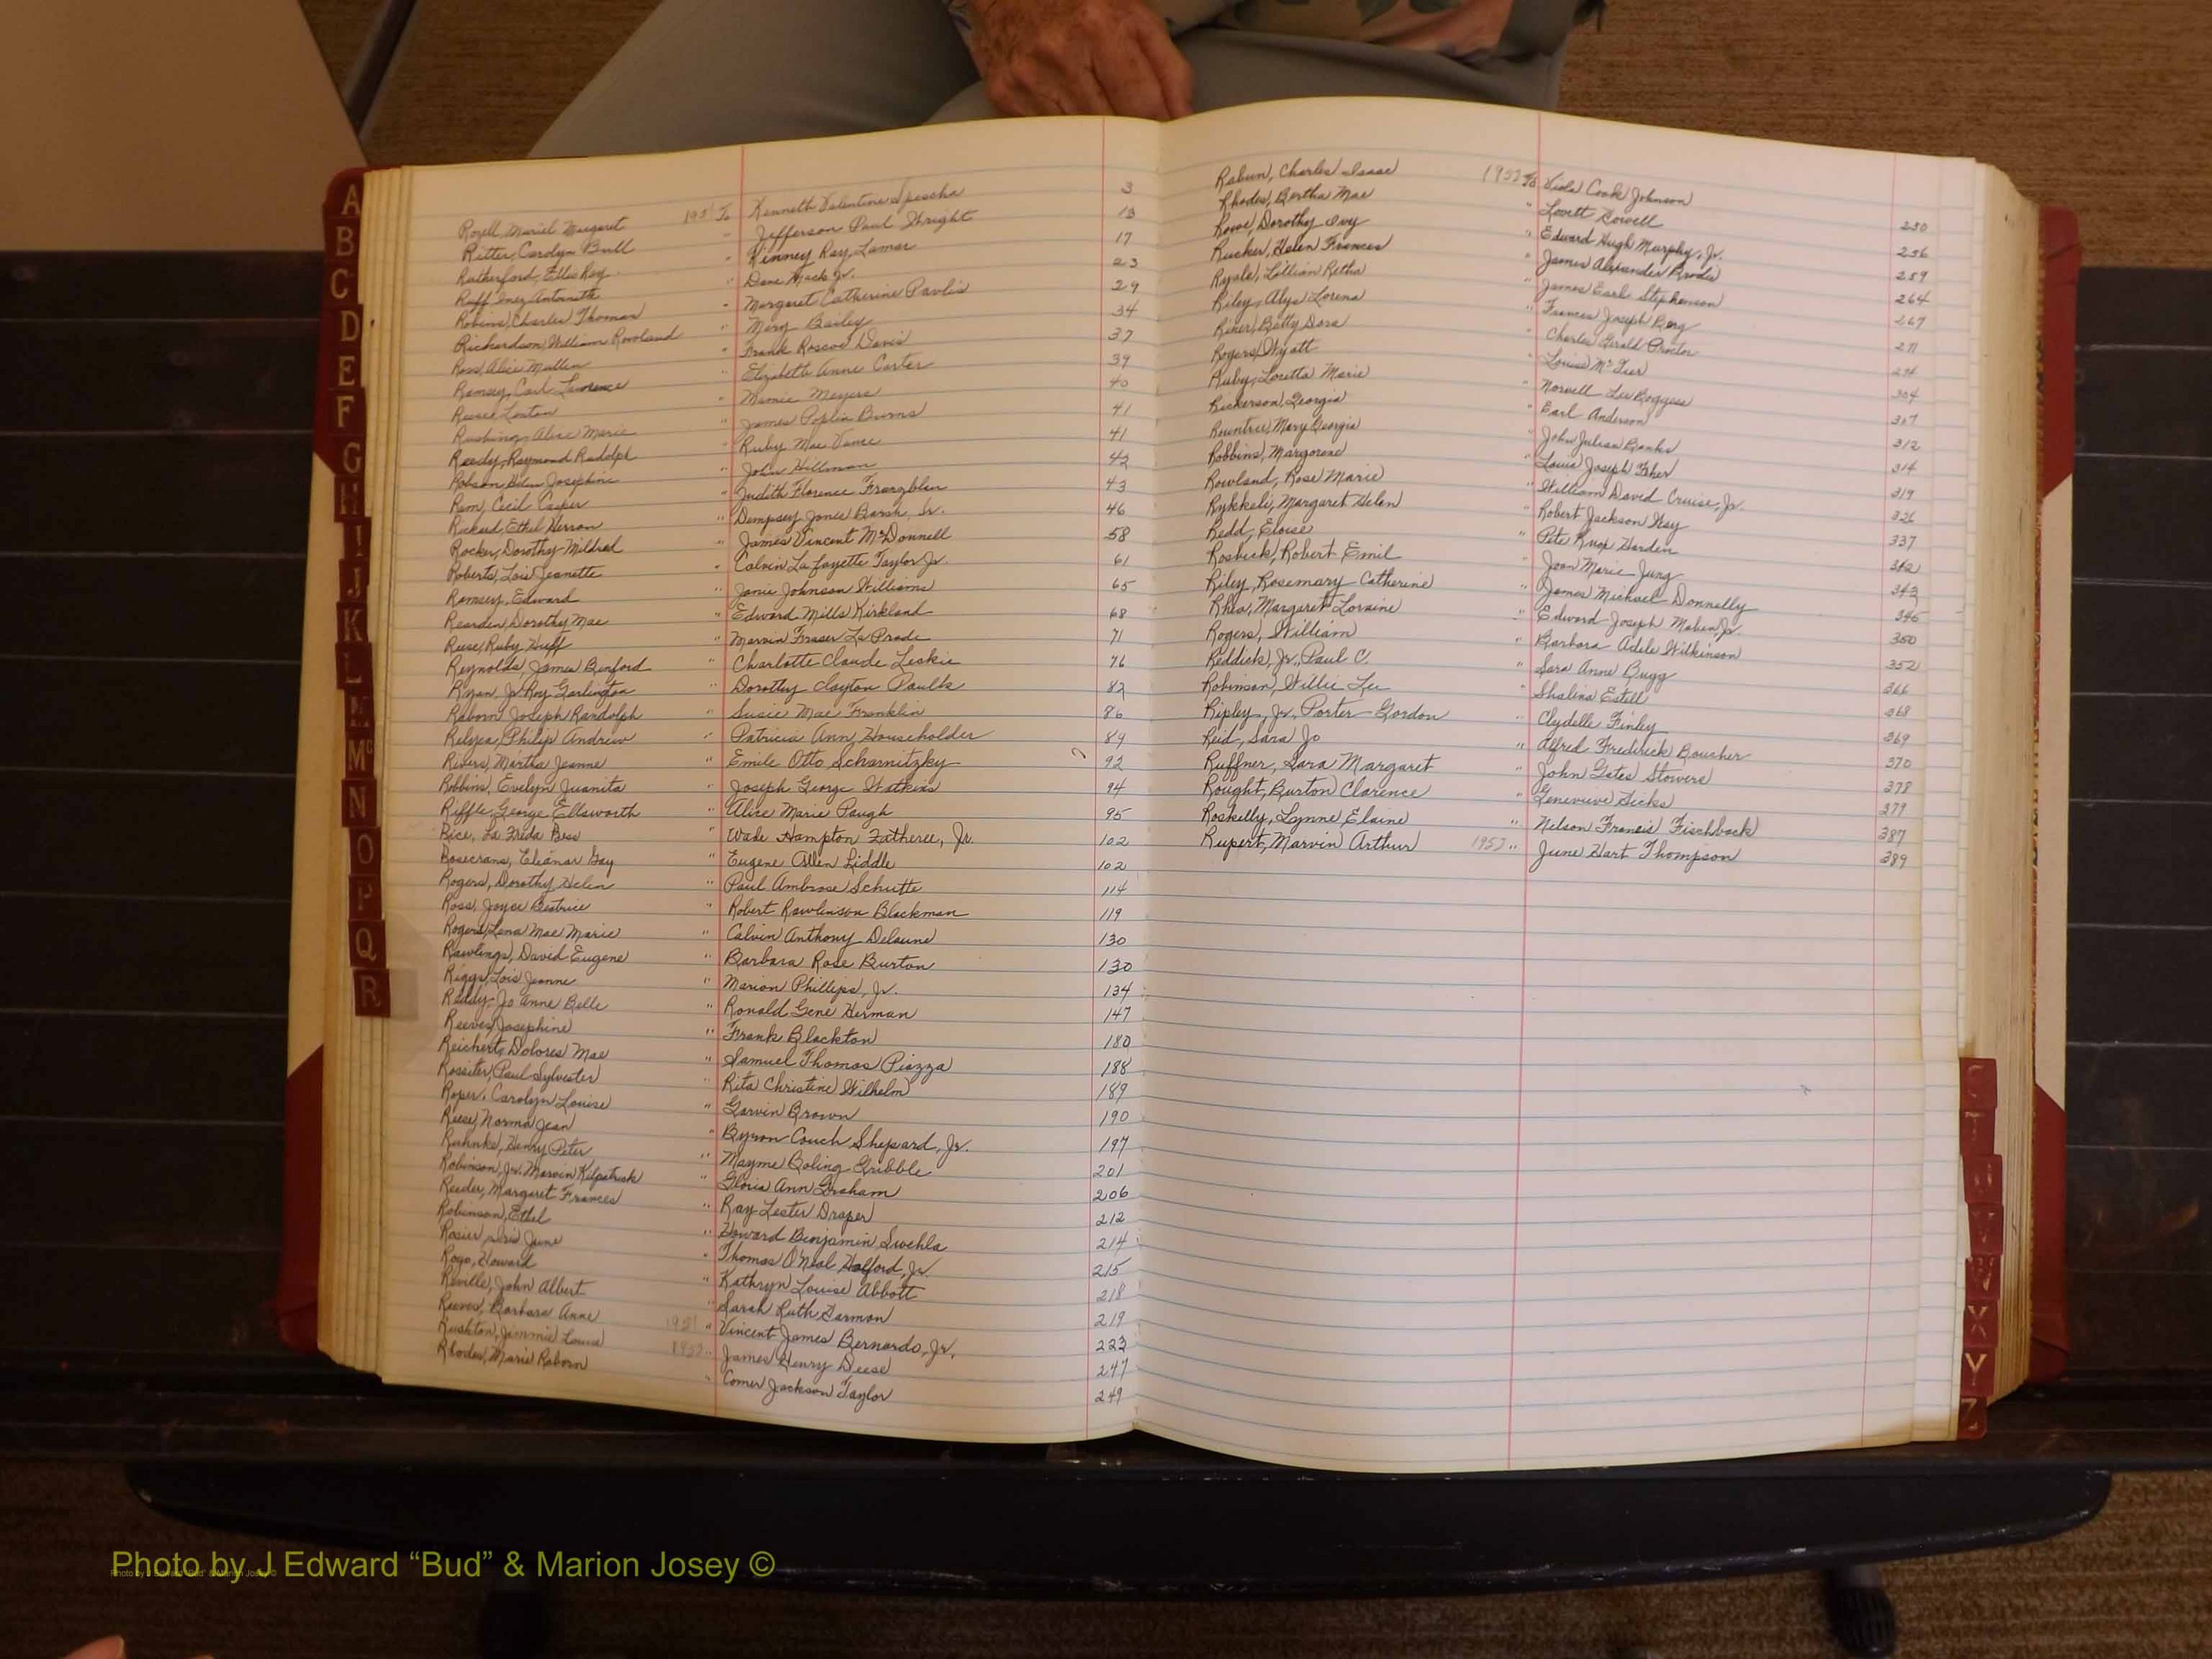 A
B
C
D
E
F
G
H
I
J
K
L
M
Mc
N
O
P
Q
R
Rozell, Muriel Margaret 1951 To Kenneth Valentine Spescha 3
Ritter, Carolyn Bull " Jefferson Paul Wright 13
Rutherford, Ellis Ray " Kinney Ray Lamar 17
Ruff, Inez Antoinette " Dave Mack Jr. 23
Robins, Charles Thomas " Margaret Catherine Pavlis 29
Richardson, William Rowland " Mary Bailey 34
Ross, Alice Mullen " Frank Roscoe Davis 37
Ramsey, Carl Lawrence " Elizabeth Anne Carter 39
Reese Loston " Mamie Meyers 40
Rushing, Alice Marie " James Poplin Burns 41
Reedy, Raymond Rudolph " Ruby Mae Vance 41
Robson, Helen Josephine " John Hillman 42
Rem, Cecil Casper " Judith Florence Franzblau 43
Rickard, Ethel Herron " Dempsey Jones Barsh, Sr. 46
Rocker, Dorothy Mildred " James Vincent McDonnell 58
Roberts, Lois Jeanette " Calvin La fayette Taylor Jr. 61
Ramsey, Edward " Janie Johnson Williams 65
Rearden, Dorothy Mae " Edward Mills Kirkland 68
Reese, Ruby Huff " Marvin Fraser La Prade 71
Reynolds, James Benford " Charlotte Claude Leskie 76
Ryan, Jr. Roy Garlington " Dorothy Clayton Paulk 82
Raborn, Joseph Randolph " Susie Mae Franklin 86
Relyea, Philip Andrew " Patricia Ann Householder 89
Rivers, Martha Jeanne " Emile Otto Scharnitzky 92
Robbins, Evelyn Juanita " Joseph George Watkins 94
Riffle, George Ellsworth " Alice Marie Paugh 95
Rice, La Freda Bess " Wade Hampton Fatheree, Jr. 102
Rosecrans, Eleanor Gay " Eugene Allen Liddle 102
Rogers, Dorothy Helen " Paul Ambrose Schutte 114
Ross, Joyce Beatrice " Robert Rawlinson Blackman 119
Rogers, Lena Mae Marie " Calvin Anthony Delaune 130
Rawlings, David Eugene " Barbara Rose Burton 130
Riggs, Lois Jeanne " Marion Phillips, Jr. 134
Reddy, Jo Anne Belle " Ronald Gene Herman 147
Reeves, Josephine " Frank Blackton 180
Reichert, Dolores Mae " Samuel Thomas Piazza 188
Rossiter, Paul Sylvester " Rita Christine Wilhelm 189
Roper, Carolyn Louise " Garvin Brown 190
Reese, Norma Jean " Byron Couch Shepard, Jr. 197
Ruhnke, Henry Peter " Mayme Boling Gribble 201
Robinson, Jr. Marvin Kilpatrick " Gloria Ann Graham 206
Reeder, Margaret Frances " Ray Lester Draper 212
Robinson, Ethel " Howard Benjamin Swehla 214
Rosier, Iris June " Thomas O'Neal Halford, Jr. 215
Rogo, Howard " Kathryn Louise Abbott 218
Reville, John Albert " Sarah Ruth Harmon 219
Reeves, Barbara Anne 1951 " Vincent James Bernardo, Jr. 223
Rushton, Jimmie Louise 1952 " James Henry Deese 247
Rhodes, Marie Raborn " Comer Jackson Taylor 249
Rabun, Charles Isaac 1952 To Viola Cook Johnson 250
Rhodes, Bertha Mae " Lovett Howell 256
Rowe, Dorothy Ivy " Edward Hugh Murphy, Jr. 259
Rucker, Helen Frances " James Alexander Brodie 264
Ryals, Lillian Retha " James Earl Stephenson 267
Riley, Alys Lorena " Frances Joseph Berg 271
Riker, Betty Dora " Charles Gerald Proctor 274
Rogers, Wyatt " Louise McTeer 304
Ruby, Loretta Marie " Norvell Lee Boggess 307
Rickerson, Georgia " Earl Anderson 312
Rountree, Mary Georgia " John Julian Banks 314
Robbins, Margorene " Louis Joseph Feher 319
Rowland, Rose Marie " William David Cruise, Jr. 326
Rykkeli, Margaret Helen " Robert Jackson Way 337
Redd, Eloise " Pete Knop Harden 342
Rosbeck, Robert Emil " Joan Marie Jung 343
Riley, Rosemary Catherine " James Michael Donnelly 345
Rhea, Margaret Loraine " Edward Joseph Maben, Jr. 350
Rogers, William " Barbara Adele Wilkinson 352
Reddick, Jr., Paul C. " Sara Anne Bugg 366
Robinson, Willie Lee " Shalina Estell 368
Ripley, Jr., Porter Gordon " Clydelle Finley 369
Reid, Sara Jo " Alfred Frederick Boucher 370
Ruffner, Sara Margaret " John Gates Stowers 378
Rought, Burton Clarence " Genevieve Hicks 379
Roskelly, Lynne Elaine " Nelson Francis Fischback 387
Rupert, Marvin Arthur 1952 " June Hart Thompson 389
S
T
U
V
W
X
Y
Z
Photo by J Edward “Bud” & Marion Josey ©
Photo by J Edward “Bud” & Marion Josey ©